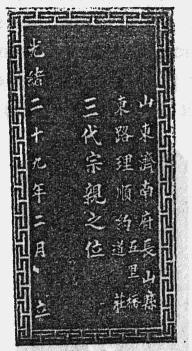 山東濟南府長山縣
東路理順約道五里橋莊
三代宗親之位
光緒二十九年二月 立